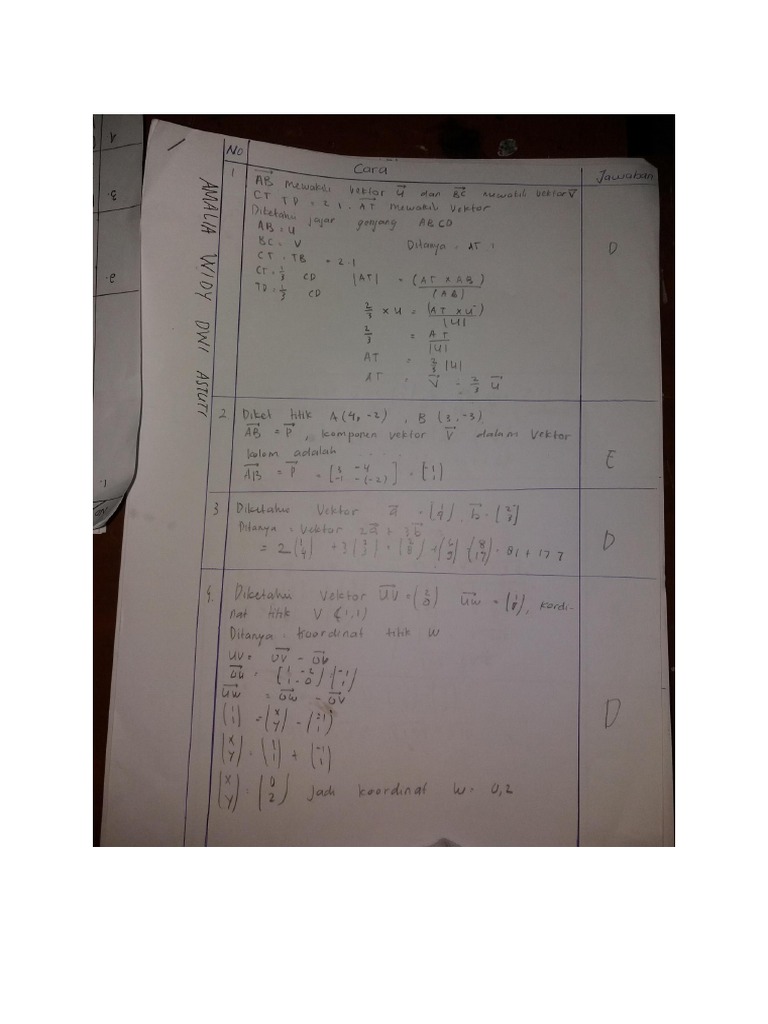 No Cara Jawaban
AMALIA WIDY DWI ASTUTI
1 AB mewakili vektor u dan BC mewakili vektor v
CT TD = 2 1. AT mewakili vektor
Diketahui jajar genjang ABCD
AB = U
BC = V Ditanya : AT :
CT : TB = 2 : 1
CT = 2/3 CD |AT| = (AT x AB) / (AB)
TD = 1/3 CD
2/3 x u = (AT x u) / |u|
2/3 = AT / |u|
AT = 2/3 |u|
AT = v - 2/3 u
D
2 Diket titik A (4, -2) , B (3, -3)
AB = P , komponen vektor V dalam vektor
kolom adalah ....
AB = P = [3 -4 / -1 -(-2)] = [-1 / 1]
E
3 Diketahui vektor a = (1 / 4) , b = (2 / 3)
Ditanya : vektor 2a + 3b
D
4. Diketahui vektor UV = (2 / 0) UW = (1 / 1), kordi-
nat titik V (1,1)
Ditanya : koordinat titik W
UV = OV - OU
OU = (1 -2 / 1 -0) (-1 / 1)
UW = OW - OU
(1 / 1) = (x / y) - (-1 / 1)
(x / y) = (1 / 1) + (-1 / 1)
(x / y) = (0 / 2) Jadi koordinat W = 0,2
D